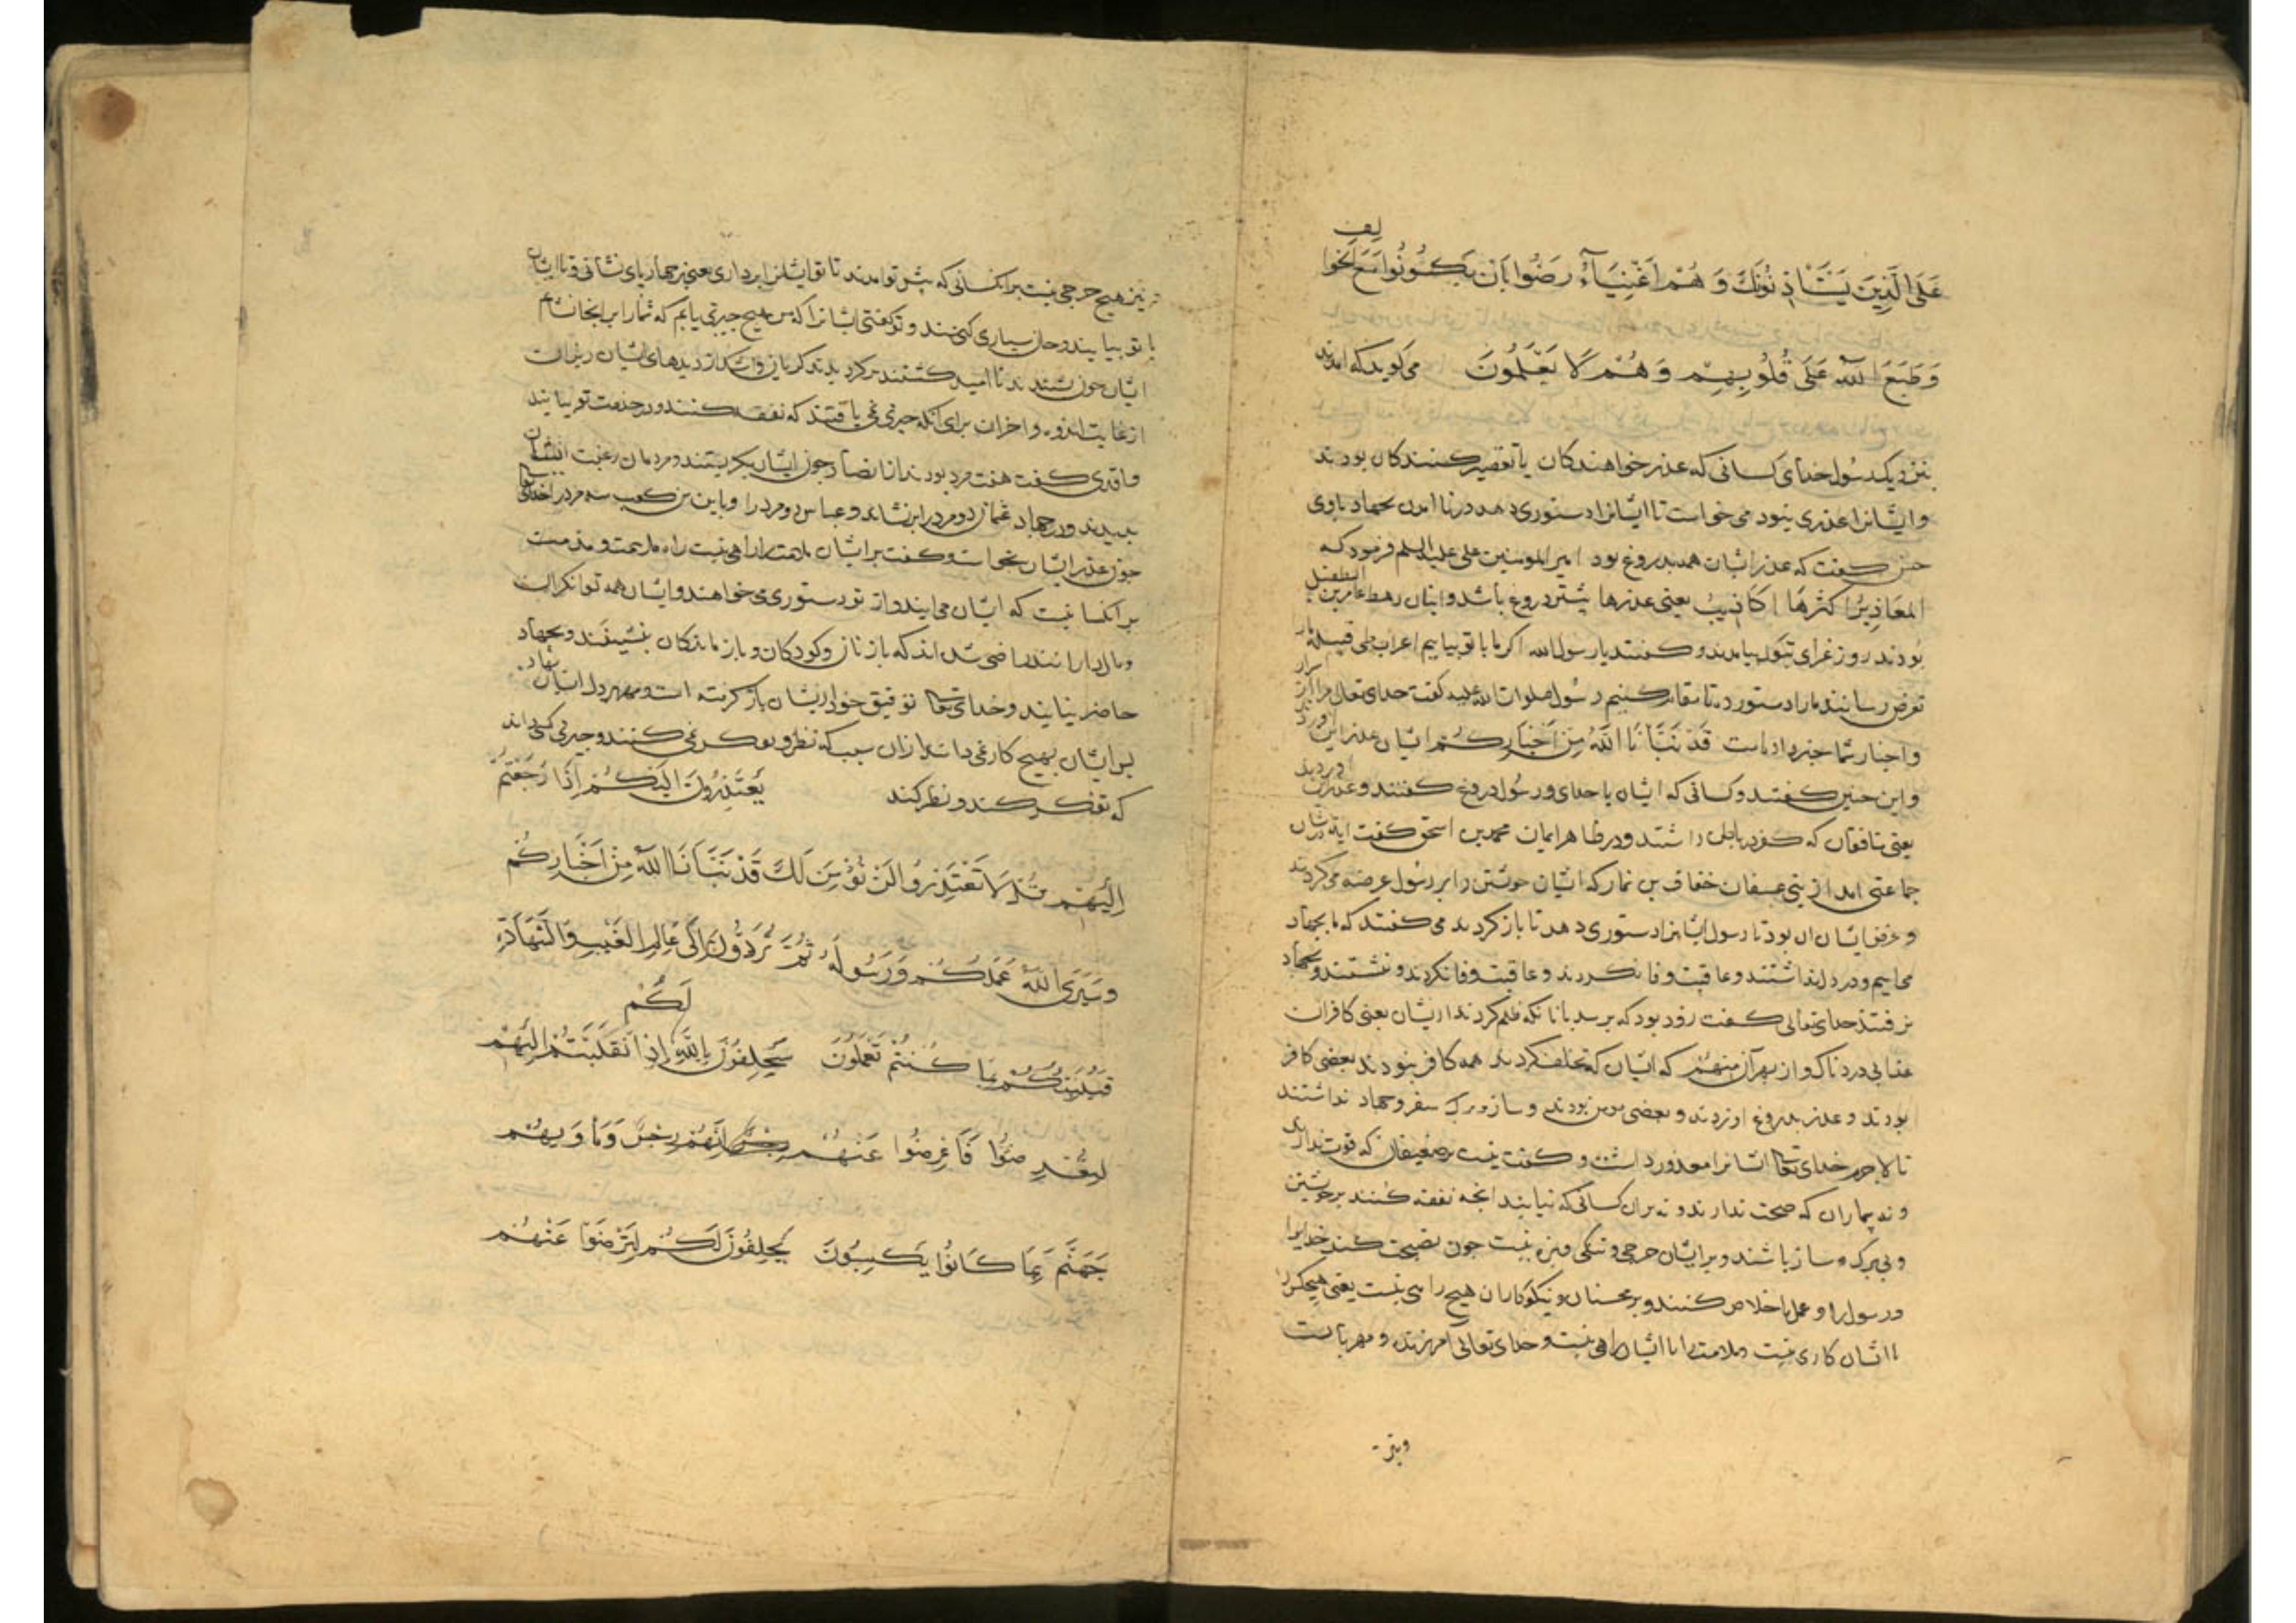 عَلَى الَّذِينَ يَسْتَأْذِنُونَكَ وَهُمْ أَغْنِيَآءُ رَضُوا بِأَنْ يَكُونُوا مَعَ الْخَوَالِفِ
وَطَبَعَ اللّٰهُ عَلَى قُلُوبِهِمْ وَهُمْ لَا يَعْلَمُونَ می کوید که امدند
بنزدیک رسول خدای کسانی که عذر خواهندکان با تقصیر کنندکان بودند
و ایشانرا عذری نبود می خواست تا ایشانرا دستوری دهد در نا امدن بجهاد با وی
حسن کفت که عذر ایشان همه بدروغ بود امیر المومنین علی علیه السلم فرمود که
المَعَاذِیرُ اکثرُهَا اکاذیبُ یعنی عذرها بیشتر دروغ باشد و اینان رهط عامر بن الطفیل
بودند روز غزای تبوک بیامدند و کفتند یا رسول الله اکر ما با تو بیاییم اعراب طی قبیله
تعرض رسانند ما را دستور ده تا مقام کنیم رسول صلوات الله علیه کفت خدای تعالی مرا از
و اخبار شما خبر داده است قَدْ نَبَّأَنَا اللَّهُ مِنْ أَخْبَارِكُمْ ایشان عذر
و این چنین کفتند و کسانی که ایشان با خدای و رسول دروغ کفتند و عذر
یعنی منافقان که کفر در باطن داشتند و در ظاهر ایمان محمد بن اسحق کفت
جماعتی امدند از بنی غفار که ایشان خویشتن را بر رسول عرضه می کردند
و غرض ایشان ان بود تا رسول ایشانرا دستوری دهد تا باز کردند می کفتند که ما بجهاد
می اییم و در دل نداشتند و عاقبت وفا نکردند و عاقبت وفا نکردند و نشستند و بجهاد
نرفتند خدای تعالی کفت زود بود که برسد بانانکه ظلم کردند از ایشان یعنی کافران
عذابی دردناک و از بهر آن منهم که ایشان که تخلف کردند همه کافر نبودند بعضی کافر
بودند و عذر بدروغ اوردند و بعضی مومن بودند و ساز و برک سفر و جهاد نداشتند
تا لاجرم خدای تعالی ایشانرا معذور داشت و کفت نیست بر ضعیفان که قوت ندارند
و نه بیماران که صحت ندارند و نه بران کسانی که نیابند انچه نفقه کنند بر خویشتن
و بی برک و ساز باشند و بر ایشان حرجی و تنکی و بزه نیست چون نصیحت کنند خدایرا
و رسولرا و عمل با خلاص کنند و بر محسنان و نیکوکاران هیچ راهی نیست یعنی هیچکس را
با ایشان کاری نیست و ملامت را با ایشان راهی نیست و خدای تعالی آمرزنده و مهربانست
و نیز
و نیز هیچ حرجی نیست بر انکسانی که پیش تو امدند تا تو ایشانرا برداری یعنی بر جهارپای نشانی و تا ایشان
با تو بیایند و جان سپاری کنند و تو کفتی ایشانرا که من هیچ چیزی نیابم که شما را بر انجا نشانم
ایشان چون شنیدند نا امید کشتند برکردیدند کریان و اشک از دیدهای ایشان ریزان
از غایت اندوه و احزان برای انکه چیزی نمی یافتند که نفقه کنند و در خدمت تو بیایند
واقدی کفت هفت مرد بودند از انصار چون ایشان بکریستند و مردمان رغبت ایشان
بدیدند در جهاد عثمان دو مرد را برنشاند و عباس دو مرد را و یامین بن کعب سه مرد را خدای تعالی
چون عذر ایشان بخواست و کفت بر ایشان ملامت را راهی نیست راه ملامت و مذمت
بر انکسانیست که ایشان می ایند و از تو دستوری می خواهند و ایشان همه توانکران
و مال دارانند راضی شده اند که با زنان و کودکان و باز ماندکان بنشینند و بجهاد
حاضر نیایند و خدای تعالی توفیق خود از ایشان باز کرفته است و مهر بر دل ایشان نهاد
بر ایشان بهیچ کار نمی دانند از ان سبب که نظر و تفکر نمی کنند و چیزی کسی داند
که تفکر کند و نظر کند يَعْتَذِرُونَ إِلَيْكُمْ إِذَا رَجَعْتُمْ
إِلَيْهِمْ قُلْ لَا تَعْتَذِرُوا لَنْ نُؤْمِنَ لَكُمْ قَدْ نَبَّأَنَا اللَّهُ مِنْ أَخْبَارِكُمْ
وَسَيَرَى اللَّهُ عَمَلَكُمْ وَرَسُولُهُ ثُمَّ تُرَدُّونَ إِلَى عَالِمِ الْغَيْبِ وَالشَّهَادَةِ
فَيُنَبِّئُكُمْ بِمَا كُنْتُمْ تَعْمَلُونَ سَيَحْلِفُونَ بِاللَّهِ لَكُمْ إِذَا انْقَلَبْتُمْ إِلَيْهِمْ
لِتُعْرِضُوا فَأَعْرِضُوا عَنْهُمْ إِنَّهُمْ رِجْسٌ وَمَأْوَيهُمْ
جَهَنَّمُ بِمَا كَانُوا يَكْسِبُونَ يَحْلِفُونَ لَكُمْ لِتَرْضَوْا عَنْهُمْ